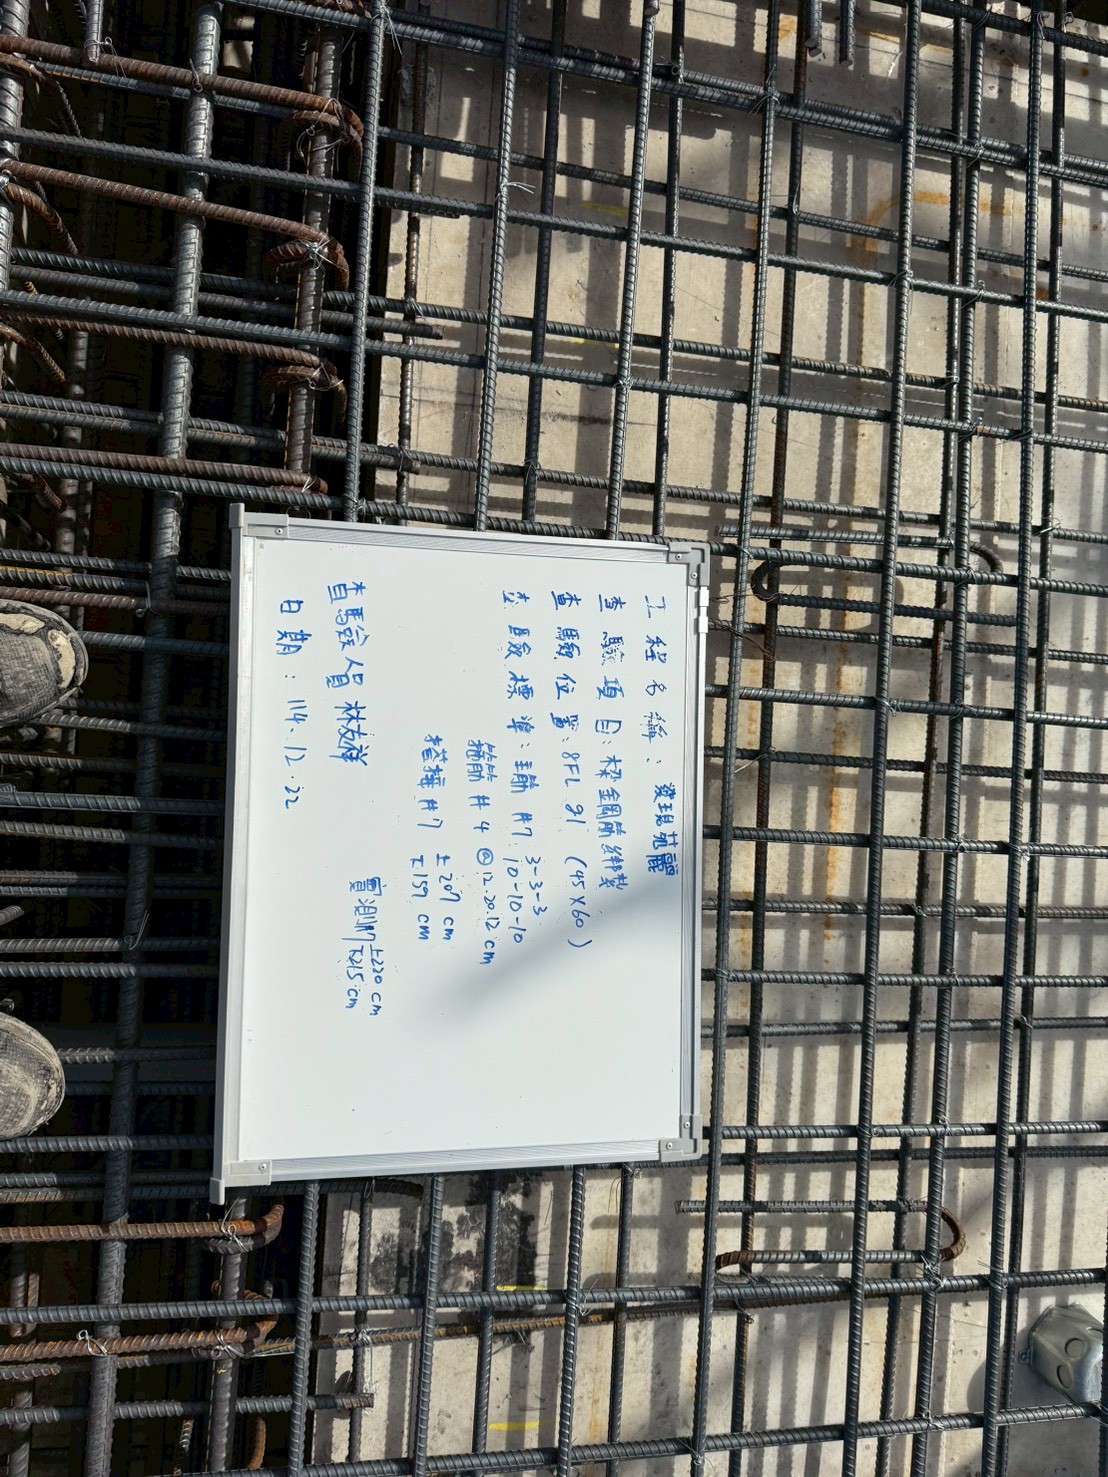 工程名稱：發現苑麗
查驗項目：樑鋼筋綁紮
查驗位置：8FL g1 (45X60)
查驗標準：主筋 #7 3-3-3
10-10-10
箍筋 #4 @12.20.12 cm
搭接 #7 上 207 cm
下 159 cm
實測 上220 cm
下215 cm
查驗人員 林友祥
日期：114.12.22